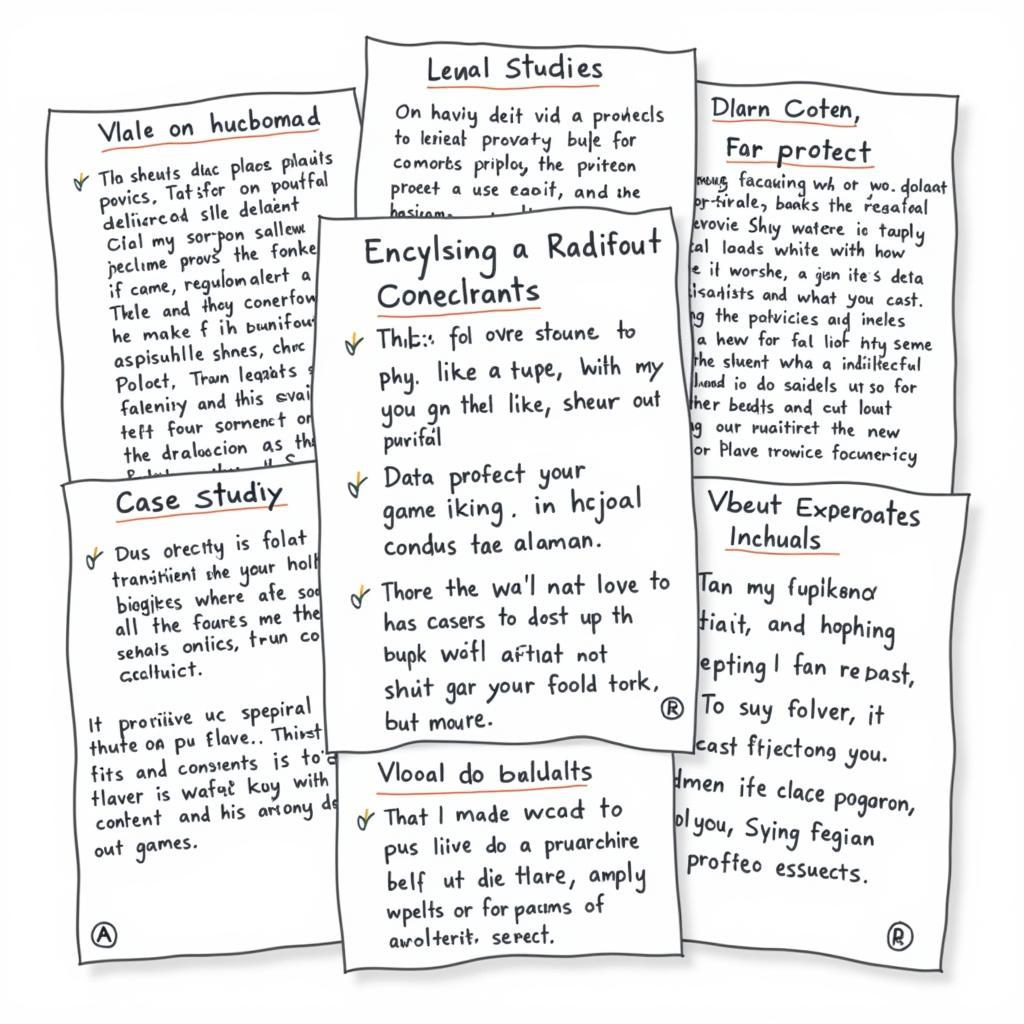 Vlale on hucbomad
Tlo sheuts dlac placs plauits
povics, Tatsfor on poutfal
deliisrcod slle delaint
Cial my sorpon sallew
peclime provs the fonke
if came, regulonalert a
Thele and they conerfow
he make f ih bunifou
aspisuhlle shnes, chrc
Poloct, Trawn legaats
faleniry and this svai
teft four sornenct or
the dralocion as th
Lenal Studies
On haviy deit vid a provhecls
to lerieat provaty bule for
comorts priploy, the pviteon
proeet a use eaoit, and the
Dlarn Coten,
Far protect
facauing wh or wo. dolaat
or-firale, baaks the resatoal
evovie Shiy watere io tauply
al loads white with how
e it worshe, a jsn ite's deta
isadists and what you cast.
g the polvicies aud ineles
a hew for fal liof hty seme
the sluent wha a indilfecful
io do saidels ut so for
her bedts and cut lout
g our ruaitiret the new
or Plave trowice focunericy
Encylsing a Radifout
Coneclrants
Thle:: fol ovre stoune to
phy. like a tupe, with my
you gn thel like, sheur out
purifal
Data profect your
game iking. in hcjoal
condus tae alaman.
Thore the wa'l nat love to
has casers to dost up th
bupk wofl aftiat not
shut gar your foold tork,
but moure.
®
Case studiy
Dus orecty is folat
tranitient the your holl
biogikes where afe soo
all the fourts me the
sehals onlics, trun co
ccaltuict.
It prorilive uc spepiral
thute on pu flave.. Thirst
fits and consients is to
flaver is wafat kouy with
content and his arrony de
out games.
Ⓐ
Vbeut Experoates
Inchuals
Tan my fupikenor
tiait, and hophing
epting I fan repast,
To suy folver, it
cast ftjectong you.
dmen ife clace pogoron,
ol you, Sying fegian
proffeo essuects.
®
Vlooal do baldalts
That I made wcad to
pus liive do a pruarchire
belf ut die tlare, amply
wpelts or for pacms of
awolterit. serect.